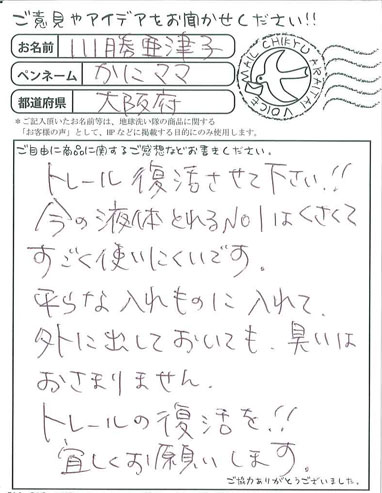 ご意見やアイデアをお聞かせください!!
お名前 川勝亜津子
ペンネーム かにママ
都道府県 大阪府
MAIL CHIKYU ARAITAI VOICE
＊ご記入頂いたお名前等は、地球洗い隊の商品に関する
「お客様の声」として、HPなどに掲載する目的にのみ使用します。
ご自由に商品に関するご感想などお書きください。
トレール復活させて下さい!!
今の液体とれるNO1はくさくて
すごく使いにくいです。
平らな入れものに入れて、
外に出しておいても、臭いは
おさまりません。
トレールの復活を!!
宜しくお願いします。
ご協力ありがとうございました。